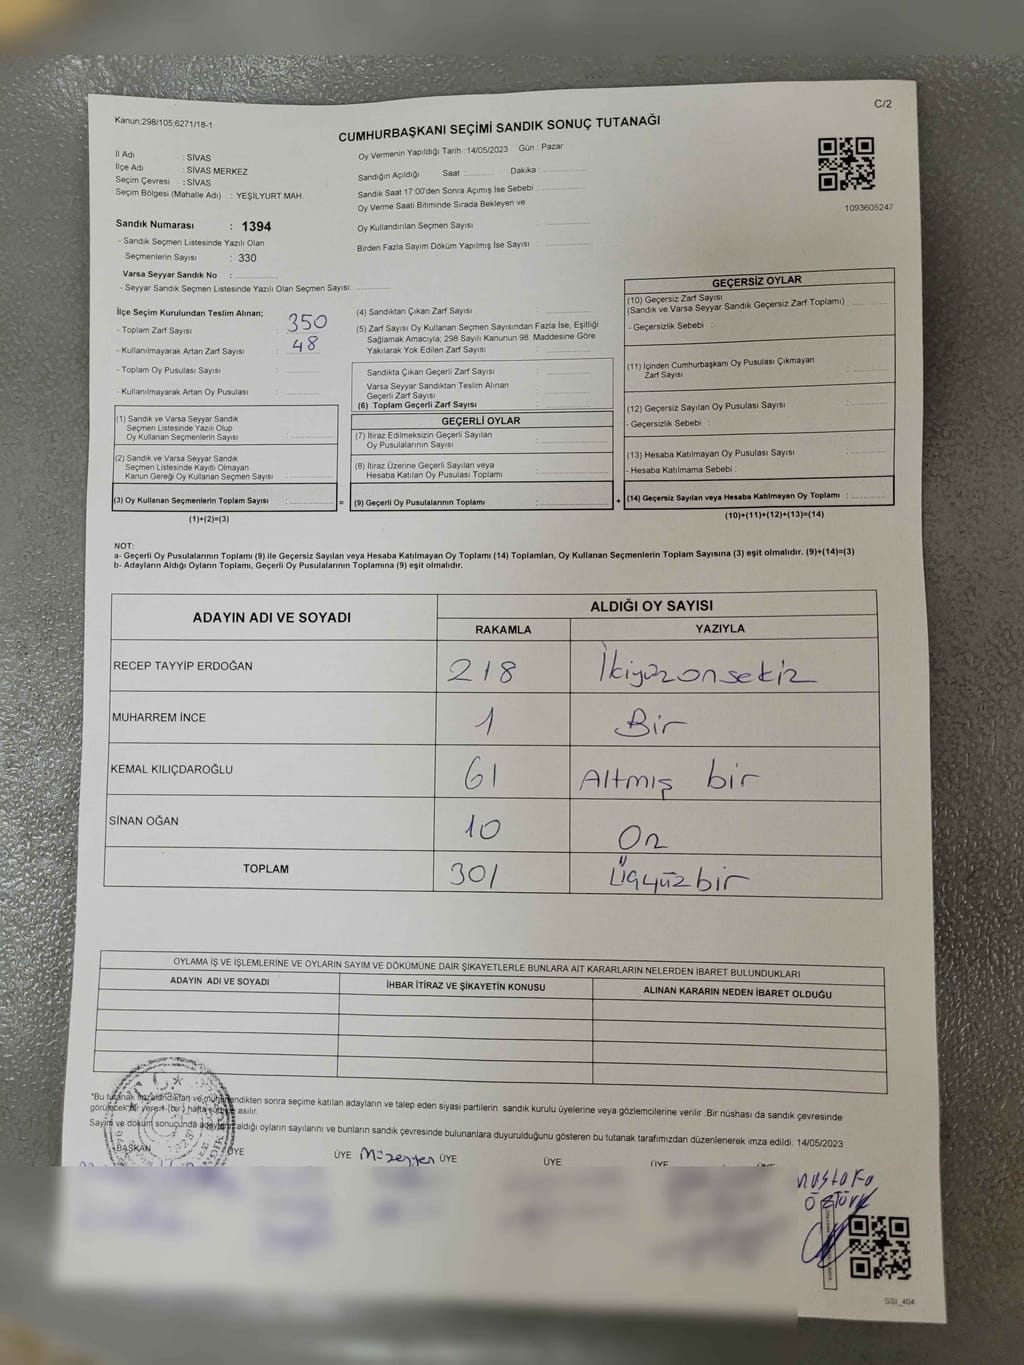 C/2
Kanun;298/105,6271/18-1
CUMHURBAŞKANI SEÇİMİ SANDIK SONUÇ TUTANAĞI
İl Adı : SİVAS
İlçe Adı : SİVAS MERKEZ
Seçim Çevresi : SİVAS
Seçim Bölgesi (Mahalle Adı) : YEŞİLYURT MAH.
Oy Vermenin Yapıldığı Tarih : 14/05/2023 Gün : Pazar
Sandığın Açıldığı Saat Dakika :
Sandık Saat 17:00'den Sonra Açımış İse Sebebi :
Oy Verme Saati Bitiminde Sırada Bekleyen ve
Oy Kullandırılan Seçmen Sayısı
Birden Fazla Sayım Döküm Yapılmış İse Sayısı :
1093605247
Sandık Numarası : 1394
- Sandık Seçmen Listesinde Yazılı Olan
Seçmenlerin Sayısı : 330
Varsa Seyyar Sandık No :
- Seyyar Sandık Seçmen Listesinde Yazılı Olan Seçmen Sayısı:
İlçe Seçim Kurulundan Teslim Alınan;
- Toplam Zarf Sayısı : 350
- Kullanılmayarak Artan Zarf Sayısı : 48
- Toplam Oy Pusulası Sayısı :
- Kullanılmayarak Artan Oy Pusulası :
(1) Sandık ve Varsa Seyyar Sandık
Seçmen Listesinde Yazılı Olup
Oy Kullanan Seçmenlerin Sayısı :
(2) Sandık ve Varsa Seyyar Sandık
Seçmen Listesinde Kayıtlı Olmayan
Kanun Gereği Oy Kullanan Seçmen Sayısı :
(3) Oy Kullanan Seçmenlerin Toplam Sayısı :
(1)+(2)=(3)
(4) Sandıktan Çıkan Zarf Sayısı :
(5) Zarf Sayısı Oy Kullanan Seçmen Sayısından Fazla İse, Eşitliği
Sağlamak Amacıyla; 298 Sayılı Kanunun 98. Maddesine Göre
Yakılarak Yok Edilen Zarf Sayısı :
Sandıkta Çıkan Geçerli Zarf Sayısı :
Varsa Seyyar Sandıktan Teslim Alınan
Geçerli Zarf Sayısı :
(6) Toplam Geçerli Zarf Sayısı :
GEÇERLİ OYLAR
(7) İtiraz Edilmeksizin Geçerli Sayılan
Oy Pusulalarının Sayısı :
(8) İtiraz Üzerine Geçerli Sayılan veya
Hesaba Katılan Oy Pusulası Toplamı :
= (9) Geçerli Oy Pusulalarının Toplamı :
GEÇERSİZ OYLAR
(10) Geçersiz Zarf Sayısı
(Sandık ve Varsa Seyyar Sandık Geçersiz Zarf Toplamı) :
- Geçersizlik Sebebi :
(11) İçinden Cumhurbaşkanı Oy Pusulası Çıkmayan
Zarf Sayısı :
(12) Geçersiz Sayılan Oy Pusulası Sayısı :
- Geçersizlik Sebebi :
(13) Hesaba Katılmayan Oy Pusulası Sayısı :
- Hesaba Katılmama Sebebi :
+ (14) Geçersiz Sayılan veya Hesaba Katılmayan Oy Toplamı :
(10)+(11)+(12)+(13)=(14)
NOT:
a- Geçerli Oy Pusulalarının Toplamı (9) ile Geçersiz Sayılan veya Hesaba Katılmayan Oy Toplamı (14) Toplamları, Oy Kullanan Seçmenlerin Toplam Sayısına (3) eşit olmalıdır. (9)+(14)=(3)
b- Adayların Aldığı Oyların Toplamı, Geçerli Oy Pusulalarının Toplamına (9) eşit olmalıdır.
ADAYIN ADI VE SOYADI
ALDIĞI OY SAYISI
RAKAMLA YAZIYLA
RECEP TAYYİP ERDOĞAN 218 İkiyüzonsekiz
MUHARREM İNCE 1 Bir
KEMAL KILIÇDAROĞLU 61 Altmış bir
SİNAN OĞAN 10 On
TOPLAM 301 Üçyüzbir
OYLAMA İŞ VE İŞLEMLERİNE VE OYLARIN SAYIM VE DÖKÜMÜNE DAİR ŞİKAYETLERLE BUNLARA AİT KARARLARIN NELERDEN İBARET BULUNDUKLARI
ADAYIN ADI VE SOYADI İHBAR İTİRAZ VE ŞİKAYETİN KONUSU ALINAN KARARIN NEDEN İBARET OLDUĞU
*Bu tutanak imzalandıktan ve mühürlendikten sonra seçime katılan adayların ve talep eden siyasi partilerin sandık kurulu üyelerine veya gözlemcilerine verilir .Bir nüshası da sandık çevresinde
görülecek bir yere 1 (bir) hafta süreyle asılır.
Sayım ve döküm sonucunda adayların aldığı oyların sayılarını ve bunların sandık çevresinde bulunanlara duyurulduğunu gösteren bu tutanak tarafımızdan düzenlenerek imza edildi. 14/05/2023
BAŞKAN ÜYE ÜYE Müzeyyen ÜYE ÜYE ÜYE
Mustafa
Öztürk
SSI_404